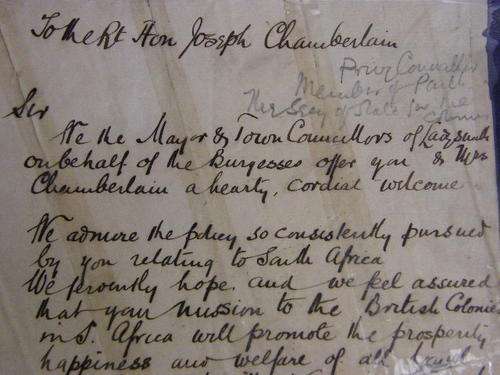 To the Rt Hon Joseph Chamberlain
Privy Councillor
Member of Parlt
The Secy of State for the
Colonies
Sir
We the Mayor & Town Councillors of Ladysmith
on behalf of the Burgesses offer you & Mrs
Chamberlain a hearty, cordial welcome
We admire the policy so consistently pursued
by you relating to South Africa
We fervently hope. and we feel assured
that your mission to the British Colonies
in S. Africa will promote the prosperity
happiness and welfare of all